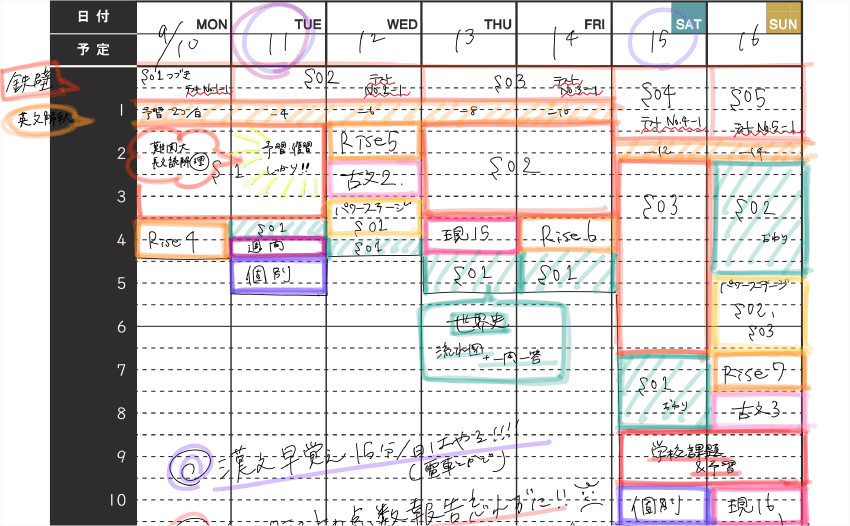 日付 MON TUE WED THU FRI SAT SUN
予定 9/10 11 12 13 14 15 16
鉄壁
§01つづき
テストNo.1-1
§02
テストNo.2-1
§03
テストNo.3-1
§04
テストNo.4-1
§05
テストNo.5-1
英文解釈
予習 2つ/日
-4
-6
-8
-10
-12
-14
1
2
3
4
5
6
7
8
9
10
難関大
長文読解
§1
予習復習
しっかり!!
Rise4
§01
週間
個別
Rise5
古文2
パワーステージ
§01
§01
§02
現15
Rise6
§01
§01
世界史
流れ図
+一問一答
§03
§01
おわり
§02
おわり
パワーステージ
§02,
§03
Rise7
古文3
学校課題
&予習
個別
現16
◎漢文早覚え 15分/日はやる!!!!
(電車とかで)
点数報告忘れずに!!